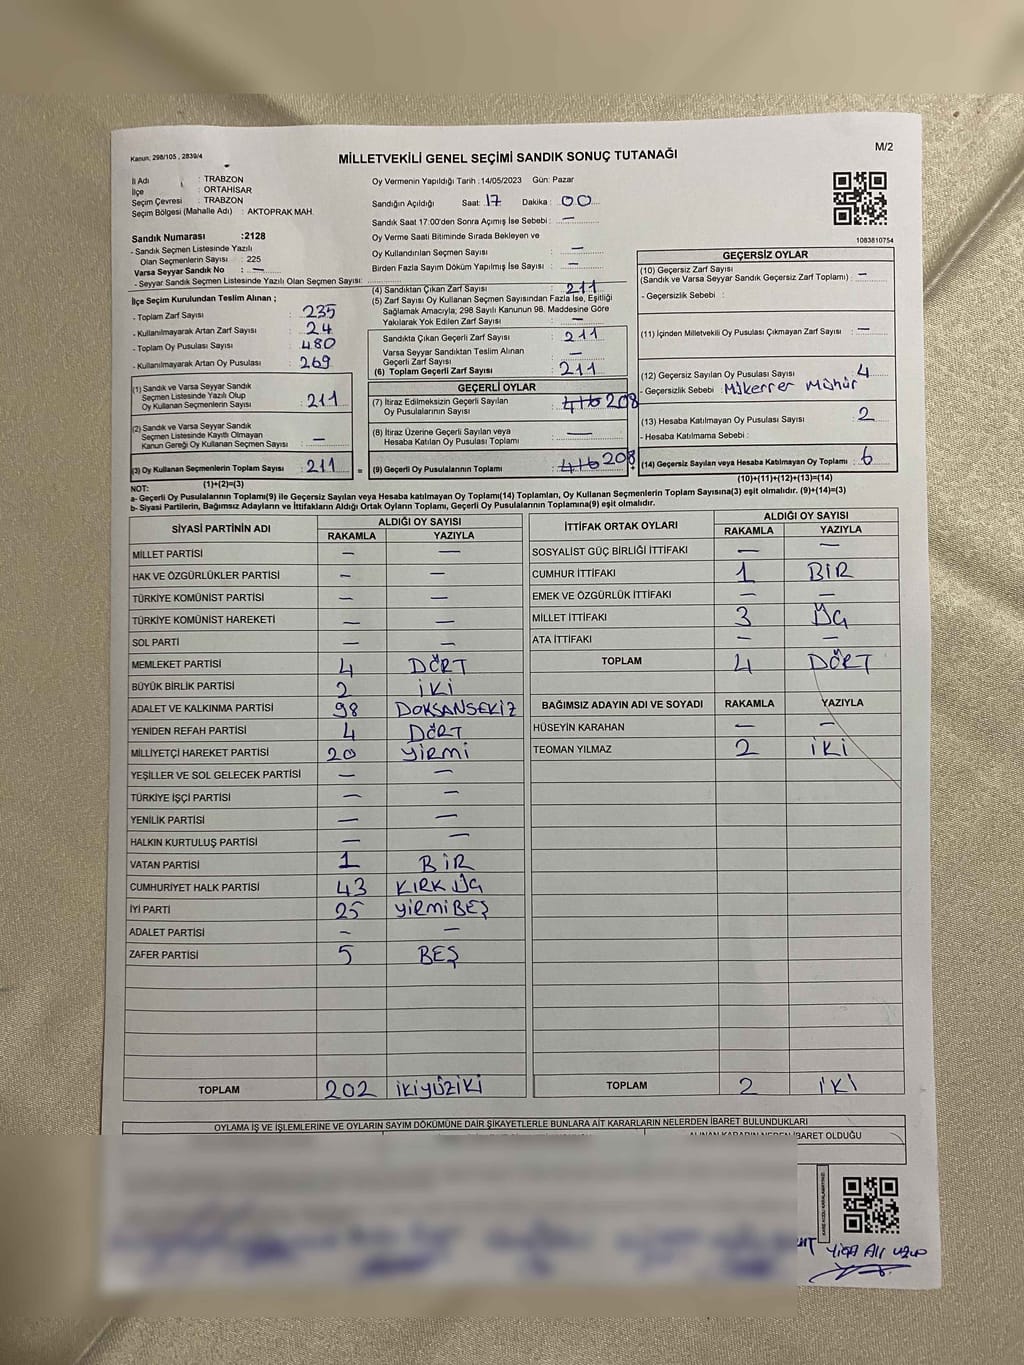 Kanun; 298/105 , 2839/4
M/2
MİLLETVEKİLİ GENEL SEÇİMİ SANDIK SONUÇ TUTANAĞI
İl Adı : TRABZON
İlçe : ORTAHİSAR
Seçim Çevresi : TRABZON
Seçim Bölgesi (Mahalle Adı) : AKTOPRAK MAH.
Sandık Numarası :2128
- Sandık Seçmen Listesinde Yazılı
Olan Seçmenlerin Sayısı : 225
Varsa Seyyar Sandık No : —
- Seyyar Sandık Seçmen Listesinde Yazılı Olan Seçmen Sayısı:
İlçe Seçim Kurulundan Teslim Alınan ;
- Toplam Zarf Sayısı : 235
- Kullanılmayarak Artan Zarf Sayısı : 24
- Toplam Oy Pusulası Sayısı : 480
- Kullanılmayarak Artan Oy Pusulası : 269
(1) Sandık ve Varsa Seyyar Sandık
Seçmen Listesinde Yazılı Olup
Oy Kullanan Seçmenlerin Sayısı : 211
(2) Sandık ve Varsa Seyyar Sandık
Seçmen Listesinde Kayıtlı Olmayan
Kanun Gereği Oy Kullanan Seçmen Sayısı : —
(3) Oy Kullanan Seçmenlerin Toplam Sayısı : 211 =
(1)+(2)=(3)
Oy Vermenin Yapıldığı Tarih : 14/05/2023 Gün: Pazar
Sandığın Açıldığı Saat: 17 Dakika : 00
Sandık Saat 17:00'den Sonra Açımış İse Sebebi : —
Oy Verme Saati Bitiminde Sırada Bekleyen ve
Oy Kullandırılan Seçmen Sayısı : —
Birden Fazla Sayım Döküm Yapılmış İse Sayısı : —
(4) Sandıktan Çıkan Zarf Sayısı : 211
(5) Zarf Sayısı Oy Kullanan Seçmen Sayısından Fazla İse, Eşitliği
Sağlamak Amacıyla; 298 Sayılı Kanunun 98. Maddesine Göre
Yakılarak Yok Edilen Zarf Sayısı : —
Sandıkta Çıkan Geçerli Zarf Sayısı : 211
Varsa Seyyar Sandıktan Teslim Alınan
Geçerli Zarf Sayısı : —
(6) Toplam Geçerli Zarf Sayısı : 211
GEÇERLİ OYLAR
(7) İtiraz Edilmeksizin Geçerli Sayılan
Oy Pusulalarının Sayısı : 416 208
(8) İtiraz Üzerine Geçerli Sayılan veya
Hesaba Katılan Oy Pusulası Toplamı : —
(9) Geçerli Oy Pusulalarının Toplamı : 416 208
1083810754
GEÇERSİZ OYLAR
(10) Geçersiz Zarf Sayısı
(Sandık ve Varsa Seyyar Sandık Geçersiz Zarf Toplamı) : —
- Geçersizlik Sebebi :
(11) İçinden Milletvekili Oy Pusulası Çıkmayan Zarf Sayısı : —
(12) Geçersiz Sayılan Oy Pusulası Sayısı : 4
- Geçersizlik Sebebi : Mükerrer Mühür
(13) Hesaba Katılmayan Oy Pusulası Sayısı : 2
- Hesaba Katılmama Sebebi :
(14) Geçersiz Sayılan veya Hesaba Katılmayan Oy Toplamı : 6
(10)+(11)+(12)+(13)=(14)
NOT:
a- Geçerli Oy Pusulalarının Toplamı(9) ile Geçersiz Sayılan veya Hesaba katılmayan Oy Toplamı(14) Toplamları, Oy Kullanan Seçmenlerin Toplam Sayısına(3) eşit olmalıdır. (9)+(14)=(3)
b- Siyasi Partilerin, Bağımsız Adayların ve İttifakların Aldığı Ortak Oyların Toplamı, Geçerli Oy Pusulalarının Toplamına(9) eşit olmalıdır.
SİYASİ PARTİNİN ADI ALDIĞI OY SAYISI
RAKAMLA YAZIYLA
MİLLET PARTİSİ — —
HAK VE ÖZGÜRLÜKLER PARTİSİ — —
TÜRKİYE KOMÜNİST PARTİSİ — —
TÜRKİYE KOMÜNİST HAREKETİ — —
SOL PARTİ — —
MEMLEKET PARTİSİ 4 DÖRT
BÜYÜK BİRLİK PARTİSİ 2 İKİ
ADALET VE KALKINMA PARTİSİ 98 DOKSANSEKİZ
YENİDEN REFAH PARTİSİ 4 DÖRT
MİLLİYETÇİ HAREKET PARTİSİ 20 YİRMİ
YEŞİLLER VE SOL GELECEK PARTİSİ — —
TÜRKİYE İŞÇİ PARTİSİ — —
YENİLİK PARTİSİ — —
HALKIN KURTULUŞ PARTİSİ — —
VATAN PARTİSİ 1 BİR
CUMHURİYET HALK PARTİSİ 43 KIRK ÜÇ
İYİ PARTİ 25 YİRMİBEŞ
ADALET PARTİSİ — —
ZAFER PARTİSİ 5 BEŞ
TOPLAM 202 İKİYÜZİKİ
İTTİFAK ORTAK OYLARI ALDIĞI OY SAYISI
RAKAMLA YAZIYLA
SOSYALİST GÜÇ BİRLİĞİ İTTİFAKI — —
CUMHUR İTTİFAKI 1 BİR
EMEK VE ÖZGÜRLÜK İTTİFAKI — —
MİLLET İTTİFAKI 3 ÜÇ
ATA İTTİFAKI — —
TOPLAM 4 DÖRT
BAĞIMSIZ ADAYIN ADI VE SOYADI RAKAMLA YAZIYLA
HÜSEYİN KARAHAN — —
TEOMAN YILMAZ 2 İKİ
TOPLAM 2 İKİ
OYLAMA İŞ VE İŞLEMLERINE VE OYLARIN SAYIM DÖKÜMÜNE DAİR ŞİKAYETLERLE BUNLARA AİT KARARLARIN NELERDEN İBARET BULUNDUKLARI
ALINAN KARARIN NEDEN İBARET OLDUĞU